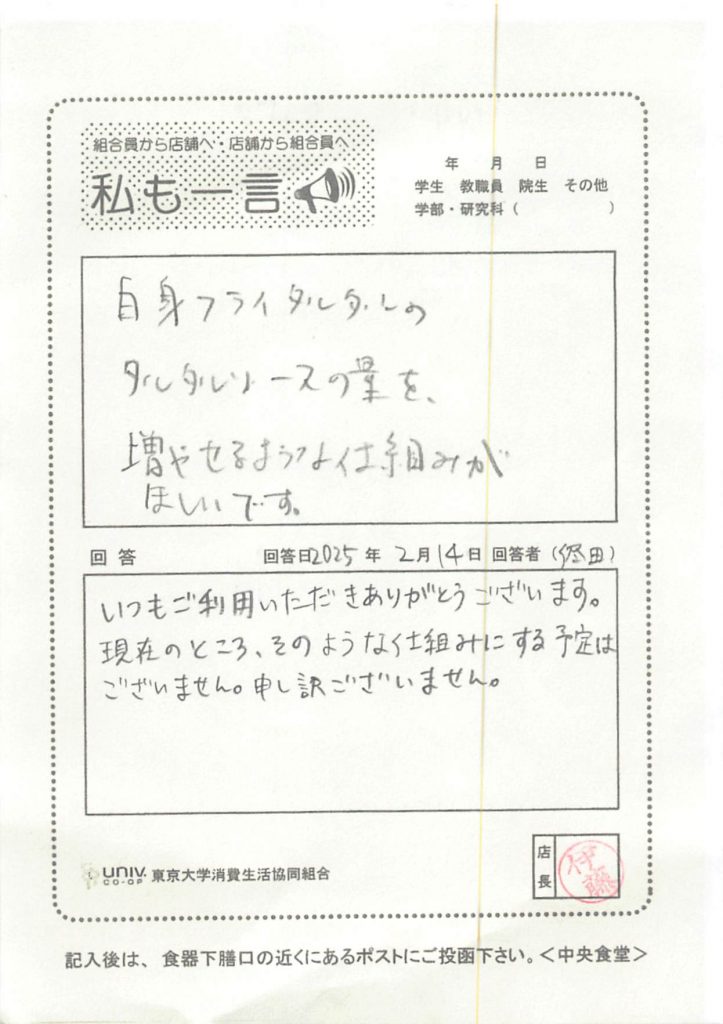 組合員から店舗へ・店舗から組合員へ
私も一言
年 月 日
学生 教職員 院生 その他
学部・研究科( )
自身フライタルタルの
タルタルソースの量を、
増やせるような仕組みが
ほしいです。
回答 回答日2025年 2月14日 回答者(田)
いつもご利用いただきありがとうございます。
現在のところ、そのような仕組みにする予定は
ございません。申し訳ございません。
UNIV. CO-OP 東京大学消費生活協同組合
店長
伊藤
記入後は、食器下膳口の近くにあるポストにご投函下さい。<中央食堂>